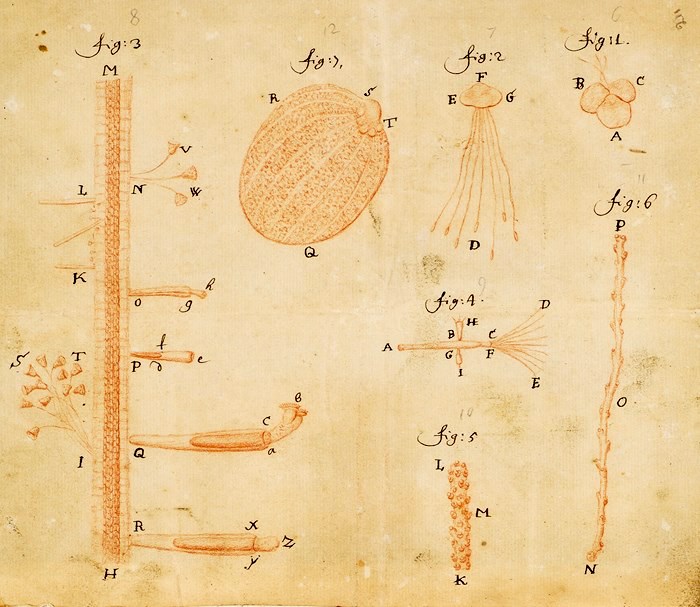 8
12
7
6
116
fig: 3
fig: 7,
fig: 2
fig: 1.
M
R
S
T
Q
F
E
G
D
B
C
A
V
N
W
L
K
o
g
h
11
fig: 6
P
O
N
9
fig: 4.
A
B
H
C
D
G
F
I
E
S
T
I
P
f
d
e
B
C
Q
a
R
x
y
Z
H
10
fig: 5
L
M
K